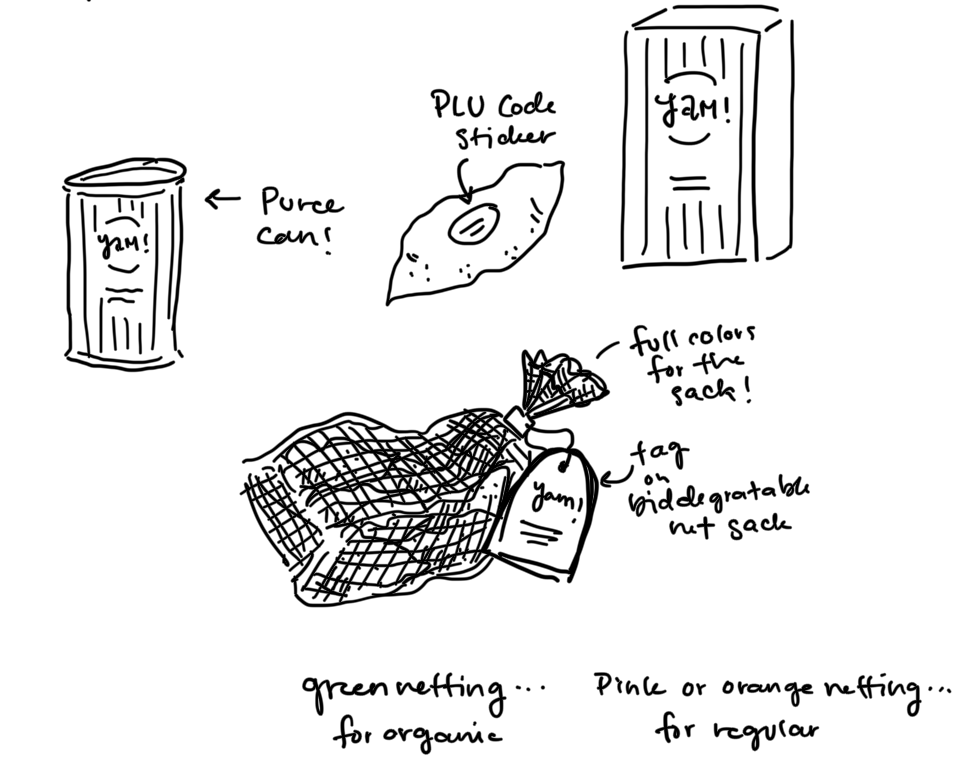 PLU Code
sticker
YAM!
← Puree
can!
YAM!
full colors
for the
sack!
tag
on
biddegratable
net sack
yam!
green netting...
for organic
Pink or orange netting...
for regular